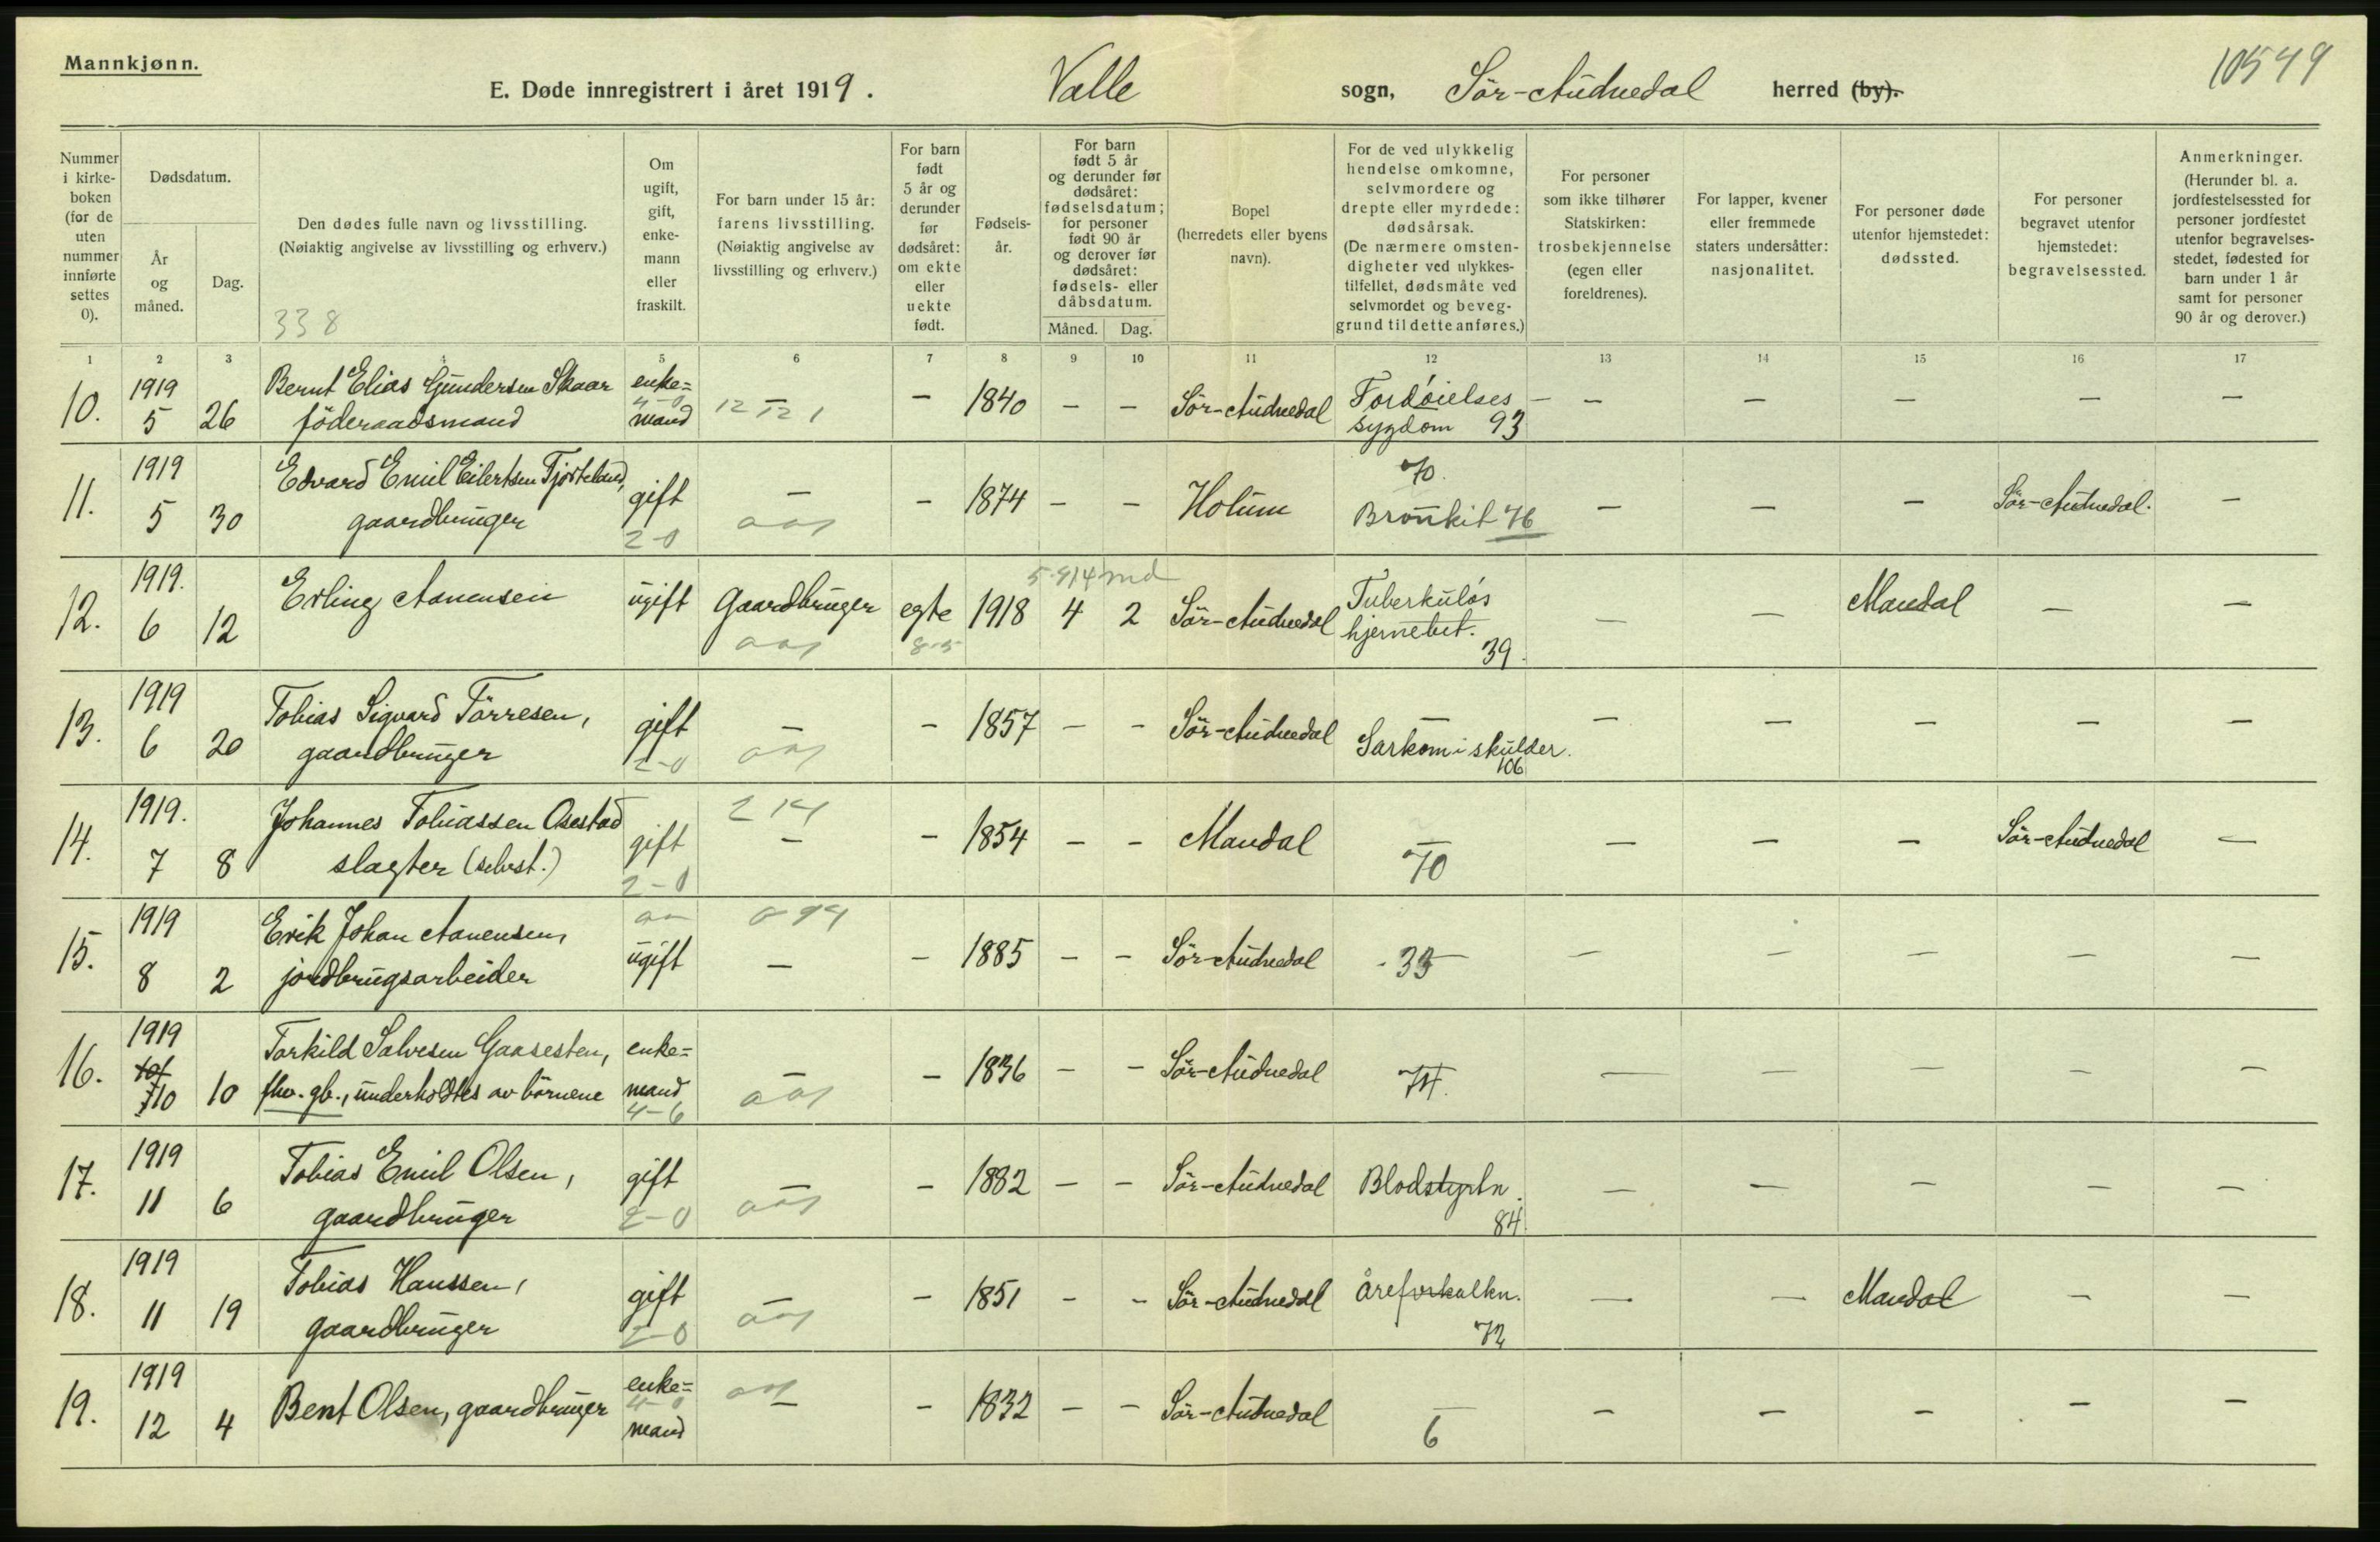 Mannkjønn.
E. Døde innregistrert i året 1919. Valle sogn, Sör-Audnedal herred (by).
10549
Nummer i kirke-boken (for de uten nummer innførte settes 0).
Dødsdatum.
År og måned.
Dag.
Den dødes fulle navn og livsstilling.
(Nøiaktig angivelse av livsstilling og erhverv.)
338
Om ugift, gift, enke-mann eller fraskilt.
For barn under 15 år: farens livsstilling.
(Nøiaktig angivelse av livsstilling og erhverv.)
For barn født 5 år og derunder før dødsåret: om ekte eller uekte født.
Fødsels-år.
For barn født 5 år og derunder før dødsåret: fødselsdatum; for personer født 90 år og derover før dødsåret: fødsels- eller dåbsdatum.
Måned. Dag.
Bopel (herredets eller byens navn).
For de ved ulykkelig hendelse omkomne, selvmordere og drepte eller myrdede: dødsårsak.
(De nærmere omsten-digheter ved ulykkes-tilfellet, dødsmåte ved selvmordet og beveg-grund til dette anføres.)
For personer som ikke tilhører Statskirken: trosbekjennelse (egen eller foreldrenes).
For lapper, kvener eller fremmede staters undersåtter: nasjonalitet.
For personer døde utenfor hjemstedet: dødssted.
For personer begravet utenfor hjemstedet: begravelsessted.
Anmerkninger.
(Herunder bl. a. jordfestelsessted for personer jordfestet utenfor begravelses-stedet, fødested for barn under 1 år samt for personer 90 år og derover.)
1 2 3 4 5 6 7 8 9 10 11 12 13 14 15 16 17
10. 1919 5 26 Bernt Elias Gundersen Skaar föderaadsmand enke=mand 4-0 12 12 1 - - 1840 - - Sör-Audnedal Fordöielses sygdom 93 - - - - - -
11. 1919 5 30 Edvard Emil Eilertsen Tjorteland, gaardbruger gift 2-0 - - 1874 - - Holum 70. Bronkit 76 - - - Sör-Audnedal. -
12. 1919. 6 12 Erling Aanensen ugift Gaardbruger egte 8-5 1918 4 2 Sör-Audnedal Tuberkuløs hjernebet. 39. - - Mandal - -
13. 1919 6 20 Tobias Sigvard Törresen, gaardbruger gift 2-0 - - 1857 - - Sör-Audnedal - Sarkom i skulder. 106 - - - - -
14. 1919. 7 8 Johannes Tobiassen Osestad slagter (selvst.) gift 2-0 214 - - 1854 - - Mandal - 70 - - - Sör-Audnedal -
15. 1919 8 2 Erik Johan Aanensen, jordbrugsarbeider ugift - - 1885 - - Sör-Audnedal - - - - - -
16. 1919 10 10 Torkild Salvesen Gaasesten, fhv. gb., underholdtes av börnene enke=mand 4-6 - - 1836 - - Sör-Audnedal 74. - - - - -
17. 1919 11 6 Tobias Emil Olsen, gaardbruger gift 2-0 - - 1882 - - Sör-Audnedal Blodstyrtn. 84. - - - - -
18. 1919 11 19 Tobias Hanssen, gaardbruger gift 2-0 - - 1851 - - Sör-Audnedal Åreforkalkn. 72 - - Mandal - -
19. 1919 12 4 Bent Olsen, gaardbruger enke=mand 4-0 - - 1832 - - Sör-Audnedal - 6 - - - - -